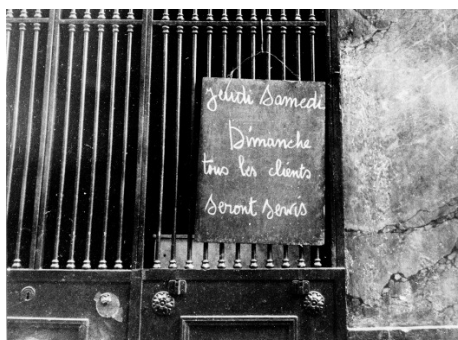 Jeudi Samedi
Dimanche
tous les clients
seront servis